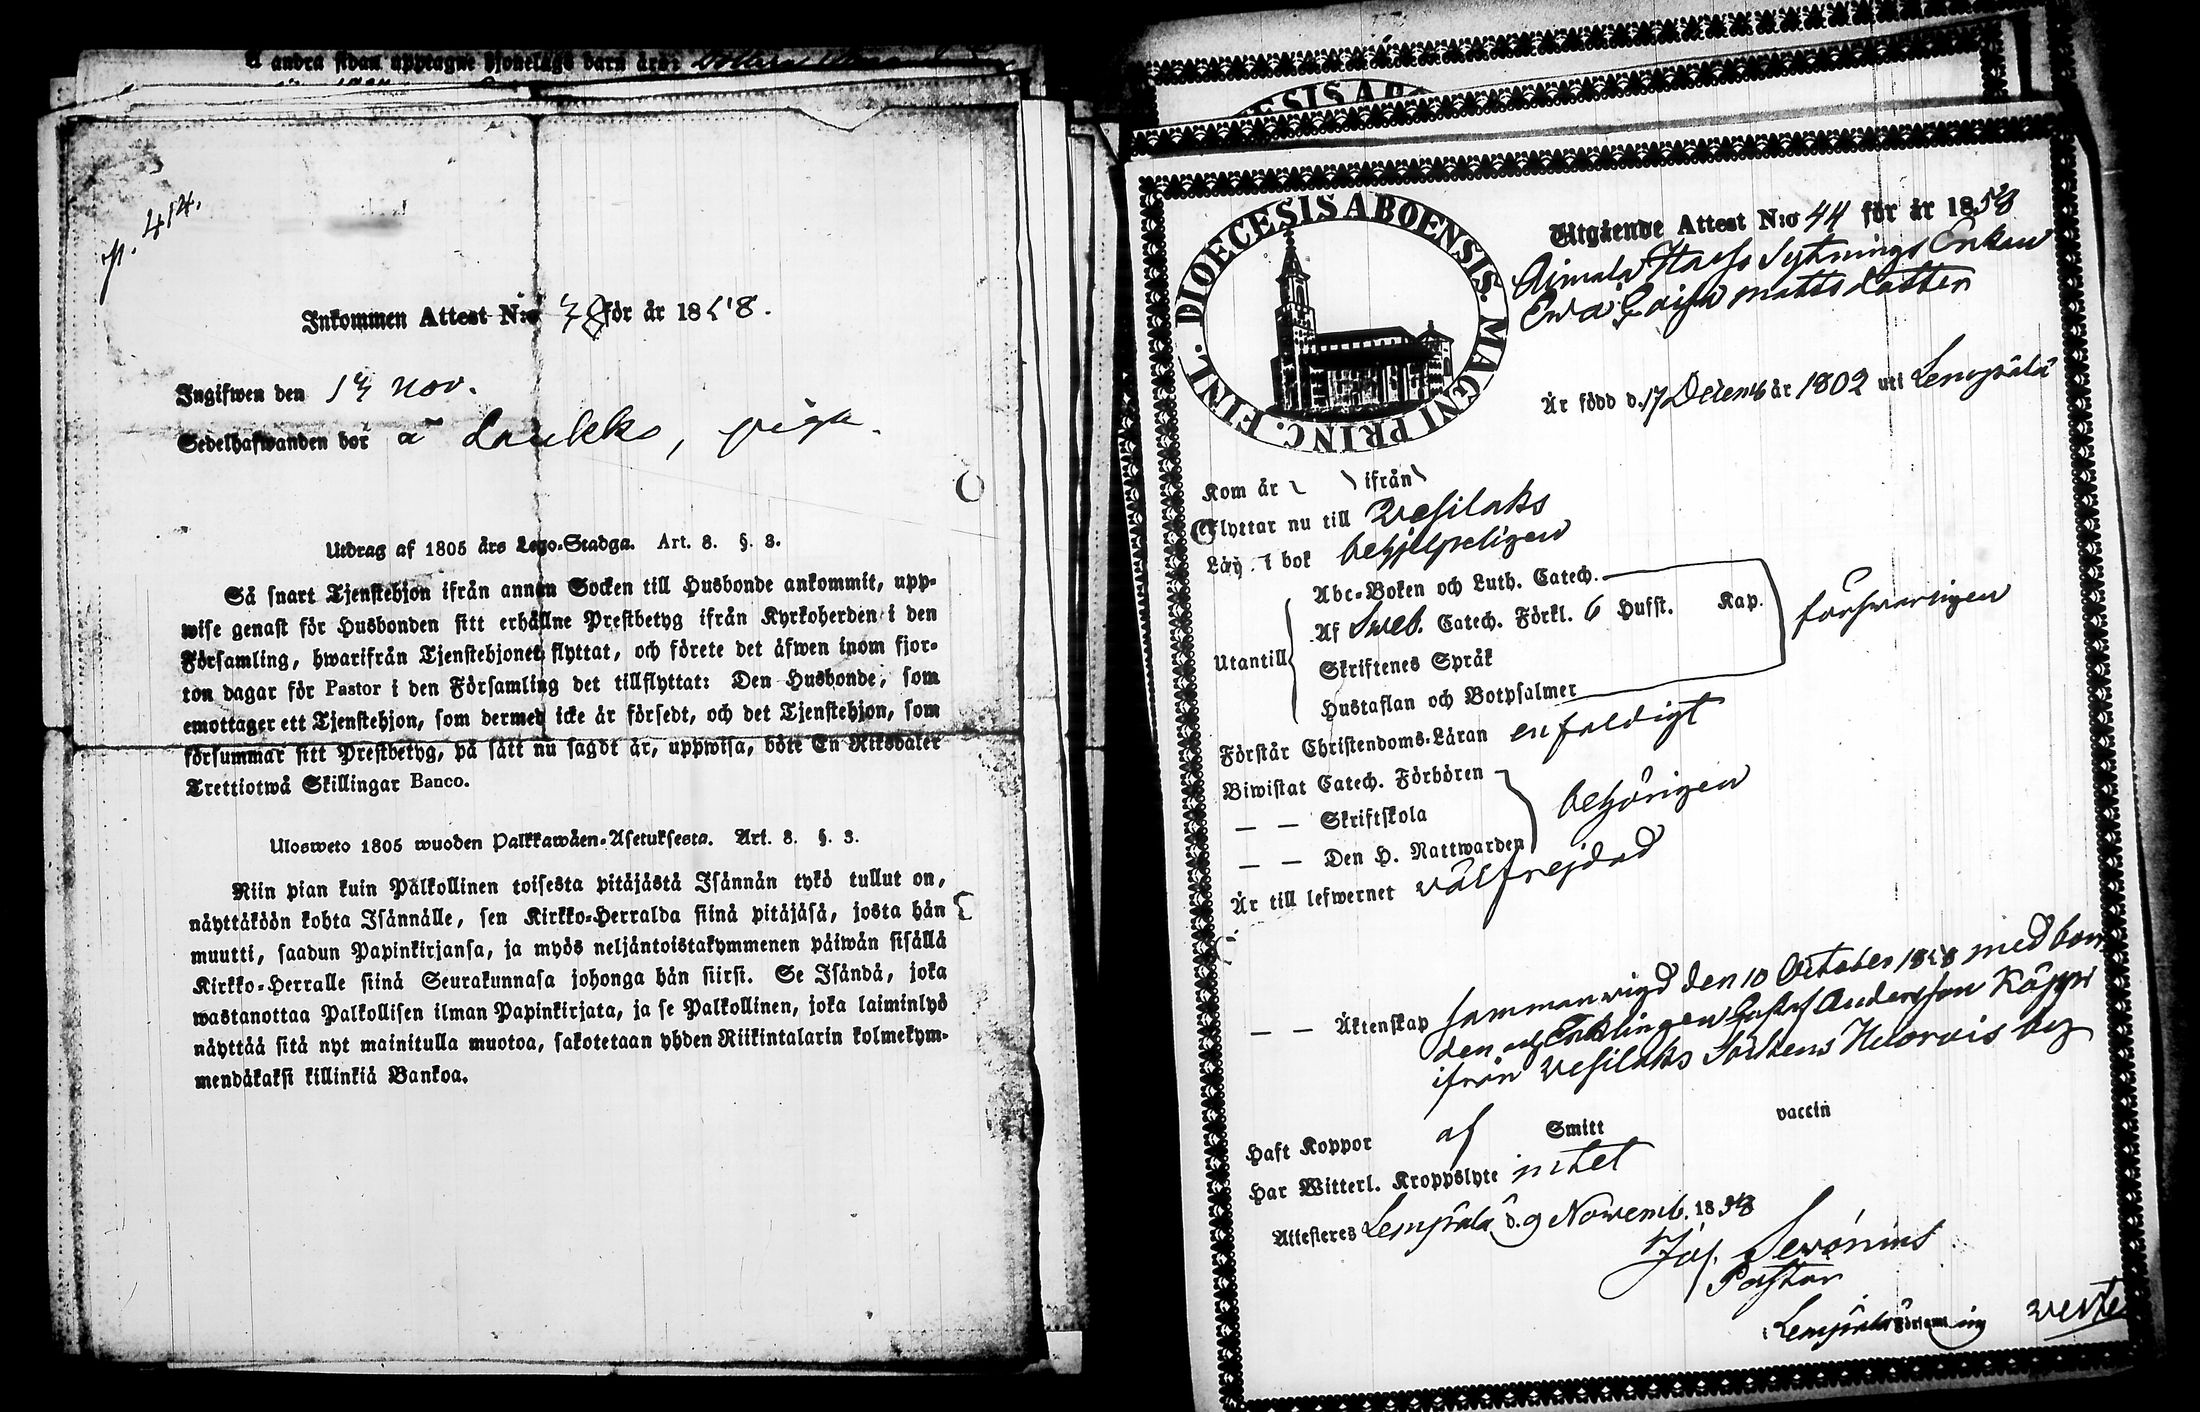 å andra sidan upptagne Hjonelags barn äro:
p. 414.
Inkommen Attest N:o 78 för år 1858.
Ingifwen den 14 Nov.
Sedelhafwanden bor å Laukko, piga.
Utdrag af 1805 års Lego-Stadga. Art. 8. §. 3.
Så snart Tjenstehjon ifrån annan Socken till Husbonde ankommit, upp-
wise genast för Husbonden sitt erhållne Prestbetyg ifrån Kyrkoherden i den
Församling, hwarifrån Tjenstehjonet flyttat, och förete det äfwen inom fjor-
ton dagar för Pastor i den Församling det tillflyttat: Den Husbonde, som
emottager ett Tjenstehjon, som dermed icke är försedt, och det Tjenstehjon, som
försummar sitt Prestbetyg, på sätt nu sagdt är, uppwisa, böte En Riksdaler
Trettiotwå Skillingar Banco.
Ulosweto 1805 wuoden Palkkawäen-Asetuksesta. Art. 8. §. 3.
Niin pian kuin Palkollinen toisesta pitäjästä Isännän tykö tullut on,
näyttäköön kohta Isännälle, sen Kirkko-Herralda siinä pitäjäsä, josta hän
muutti, saadun Papinkirjansa, ja myös neljäntoistakymmenen päiwän sisällä
Kirkko-Herralle siinä Seurakunnasa johonga hän siirsi. Se Isändä, joka
wastanottaa Palkollisen ilman Papinkirjata, ja se Palkollinen, joka laiminlyö
näyttää sitä nyt mainitulla muotoa, sakotetaan yhden Riikintalarin kolmekym-
mendäkaksi killinkiä Bankoa.
DIOECESIS ABOENSIS. MAGNI PRINC. FINL.
Utgående Attest N:o 44 för år 1858
Aimala Haefs Sytnings Enkan
Eva Caisa Matts dotter
Är född d. 17 Decemb år 1802 uti Lempälä
Kom år ifrån
Flyttar nu till Vesilaks
Läs i bok behjelpeligen
Utantill
Abc-Boken och Luth. Catech.
Af Sveb. Catech. Förkl. 6 Hufst. Kap.
Skriftenes Språk
Hustaflan och Botpsalmer
försvarligen
Förstår Christendoms-Läran enfaldigt
Biwistat Catech. Förhören
— — Skriftskola
— — Den H. Nattwarden
behörigen
Är till lefwernet välfrejdad
— — Äktenskap sammanvigd den 10 October 1858 med bon
den och Enklingen Gustaf Andersson Käppi
ifrån Vesilaks Sockens Hulorvis by
Haft Koppor af Smitt vaccin
Har Witterl. Kroppslyte intet
Attesteres Lempälä d. 9 Novemb. 1858
Jos. Serónius
Pastor
i Lempälä Församling
verte